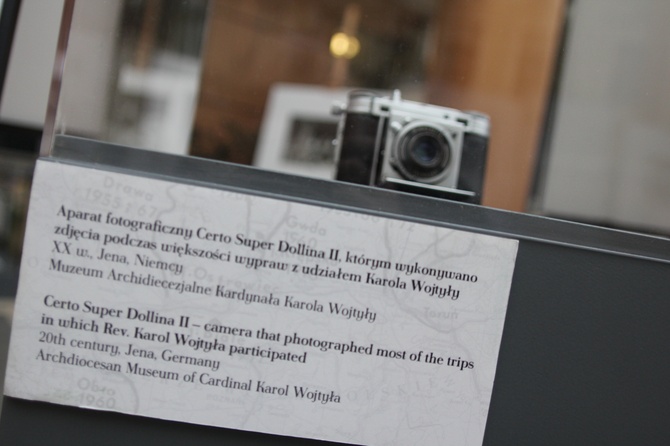 Drawa
1955 i 67
Gwda
Aparat fotograficzny Certo Super Dollina II, którym wykonywano
zdjęcia podczas większości wypraw z udziałem Karola Wojtyły
XX w., Jena, Niemcy
Muzeum Archidiecezjalne Kardynała Karola Wojtyły
Certo Super Dollina II – camera that photographed most of the trips
in which Rev. Karol Wojtyła participated
20th century, Jena, Germany
Archdiocesan Museum of Cardinal Karol Wojtyła
Toruń
Obra
1960